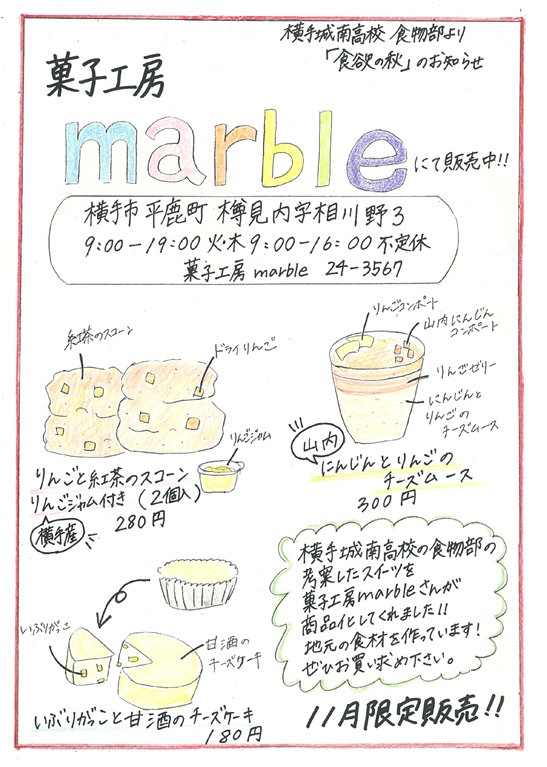 横手城南高校 食物部より
「食欲の秋」のお知らせ
菓子工房
marble にて販売中!!
横手市平鹿町 樽見内字相川野3
9:00-19:00 火・木 9:00-16:00 不定休
菓子工房marble 24-3567
紅茶のスコーン
ドライりんご
りんごジャム
りんごと紅茶のスコーン
りんごジャム付き (2個入)
280円
横手産
りんごコンポート
山内にんじん
コンポート
りんごゼリー
にんじんと
りんごの
チーズムース
山内
にんじんとりんごの
チーズムース
300円
いぶりがっこ
甘酒の
チーズケーキ
いぶりがっこと甘酒のチーズケーキ
180円
横手城南高校の食物部の
考案したスイーツを
菓子工房marbleさんが
商品化してくれました!!
地元の食材を作っています!
ぜひお買い求め下さい。
11月限定販売!!